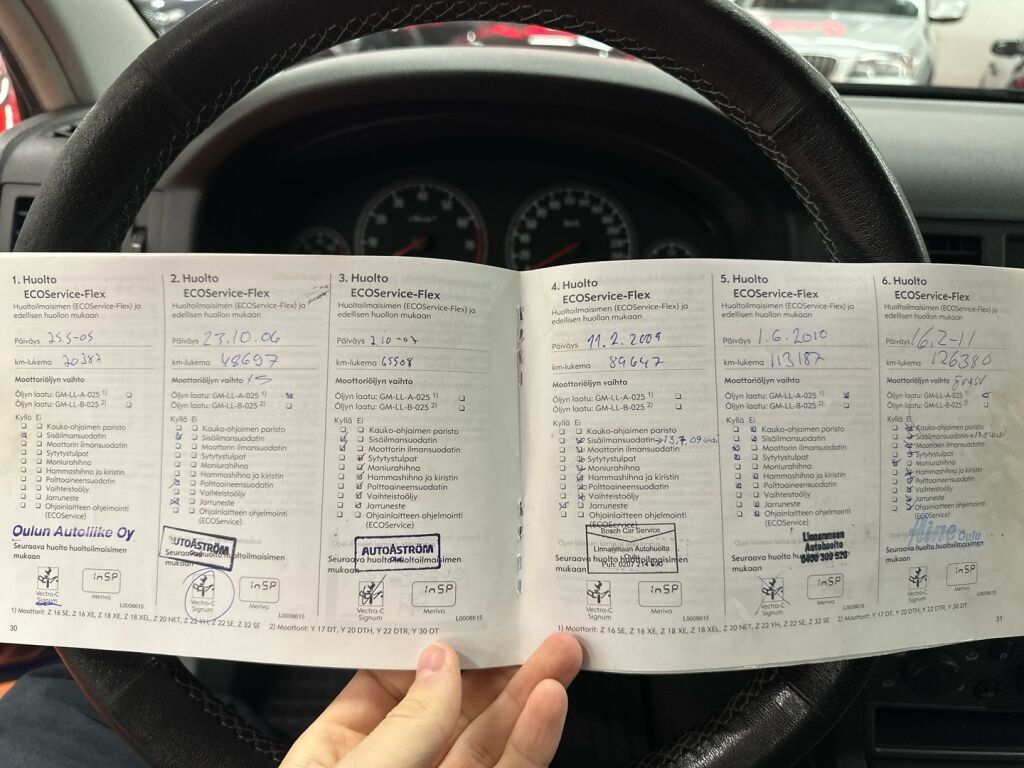 1. Huolto
ECOService-Flex
Huoltoilmaisimen (ECOService-Flex) ja
edellisen huollon mukaan
Päiväys 25.5-05
km-lukema 20387
Moottoriöljyn vaihto
Öljyn laatu: GM-LL-A-025 1)
GM-LL-B-025 2)
Kyllä Ei
Kauko-ohjaimen paristo
Sisäilmansuodatin
Moottorin ilmansuodatin
Sytytystulpat
Moniurahihna
Hammashihna ja kiristin
Polttoaineensuodatin
Vaihteistoöljy
Jarruneste
Ohjainlaitteen ohjelmointi
(ECOService)
Oulun Autoliike Oy
Seuraava huolto huoltoilmaisimen
mukaan
Vectra-C
Signum
inSP
Meriva
L0008615
2. Huolto
ECOService-Flex
Huoltoilmaisimen (ECOService-Flex) ja
edellisen huollon mukaan
Päiväys 23.10.06
km-lukema 48697
Moottoriöljyn vaihto
Öljyn laatu: GM-LL-A-025 1)
GM-LL-B-025 2)
Kyllä Ei
Kauko-ohjaimen paristo
Sisäilmansuodatin
Moottorin ilmansuodatin
Sytytystulpat
Moniurahihna
Hammashihna ja kiristin
Polttoaineensuodatin
Vaihteistoöljy
Jarruneste
Ohjainlaitteen ohjelmointi
(ECOService)
UTOÅSTRÖM
Seuraava huolto huoltoilmaisimen
mukaan
Vectra-C
Signum
inSP
Meriva
L0008615
3. Huolto
ECOService-Flex
Huoltoilmaisimen (ECOService-Flex) ja
edellisen huollon mukaan
Päiväys 2 10-07
km-lukema 65508
Moottoriöljyn vaihto
Öljyn laatu: GM-LL-A-025 1)
GM-LL-B-025 2)
Kyllä Ei
Kauko-ohjaimen paristo
Sisäilmansuodatin
Moottorin ilmansuodatin
Sytytystulpat
Moniurahihna
Hammashihna ja kiristin
Polttoaineensuodatin
Vaihteistoöljy
Jarruneste
Ohjainlaitteen ohjelmointi
(ECOService)
AUTOÅSTRÖM
Seuraava huolto huoltoilmaisimen
mukaan
Vectra-C
Signum
inSP
Meriva
L0008615
1) Moottorit: Z 16 SE, Z 16 XE, Z 18 XE, Z 18 XEL, Z 20 NET, Z 22 YH, Z 22 SE, Z 32 SE 2) Moottorit: Y 17 DT, Y 20 DTH, Y 22 DTR, Y 30 DT
30
4. Huolto
ECOService-Flex
Huoltoilmaisimen (ECOService-Flex) ja
edellisen huollon mukaan
Päiväys 11.2.2009
km-lukema 89647
Moottoriöljyn vaihto
Öljyn laatu: GM-LL-A-025 1)
GM-LL-B-025 2)
Kyllä Ei
Kauko-ohjaimen paristo
Sisäilmansuodatin 13,7,09 uusi
Moottorin ilmansuodatin
Sytytystulpat
Moniurahihna
Hammashihna ja kiristin
Polttoaineensuodatin
Vaihteistoöljy
Jarruneste
Ohjainlaitteen ohjelmointi
(ECOService)
Bosch Car Service
Linnanmaan Autohuolto
Oulu
Puh: 0207 214 690
Seuraava huolto huoltoilmaisimen
mukaan
Vectra-C
Signum
inSP
Meriva
L0008615
5. Huolto
ECOService-Flex
Huoltoilmaisimen (ECOService-Flex) ja
edellisen huollon mukaan
Päiväys 1.6.2010
km-lukema 113187
Moottoriöljyn vaihto
Öljyn laatu: GM-LL-A-025 1)
GM-LL-B-025 2)
Kyllä Ei
Kauko-ohjaimen paristo
Sisäilmansuodatin
Moottorin ilmansuodatin
Sytytystulpat
Moniurahihna
Hammashihna ja kiristin
Polttoaineensuodatin
Vaihteistoöljy
Jarruneste
Ohjainlaitteen ohjelmointi
(ECOService)
Linnanmaan
Autohuolto
0400 309 529
Seuraava huolto huoltoilmaisimen
mukaan
Vectra-C
Signum
inSP
Meriva
L0008615
6. Huolto
ECOService-Flex
Huoltoilmaisimen (ECOService-Flex) ja
edellisen huollon mukaan
Päiväys 16.2-11
km-lukema 126380
Moottoriöljyn vaihto
Öljyn laatu: GM-LL-A-025 1)
GM-LL-B-025 2)
Kyllä Ei
Kauko-ohjaimen paristo
Sisäilmansuodatin
Moottorin ilmansuodatin
Sytytystulpat
Moniurahihna
Hammashihna ja kiristin
Polttoaineensuodatin
Vaihteistoöljy
Jarruneste
Ohjainlaitteen ohjelmointi
(ECOService)
Oulu
Seuraava huolto huoltoilmaisimen
mukaan
Vectra-C
Signum
inSP
Meriva
L0008615
1) Moottorit: Z 16 SE, Z 16 XE, Z 18 XE, Z 18 XEL, Z 20 NET, Z 22 YH, Z 22 SE, Z 32 SE 2) Moottorit: Y 17 DT, Y 20 DTH, Y 22 DTR, Y 30 DT
31